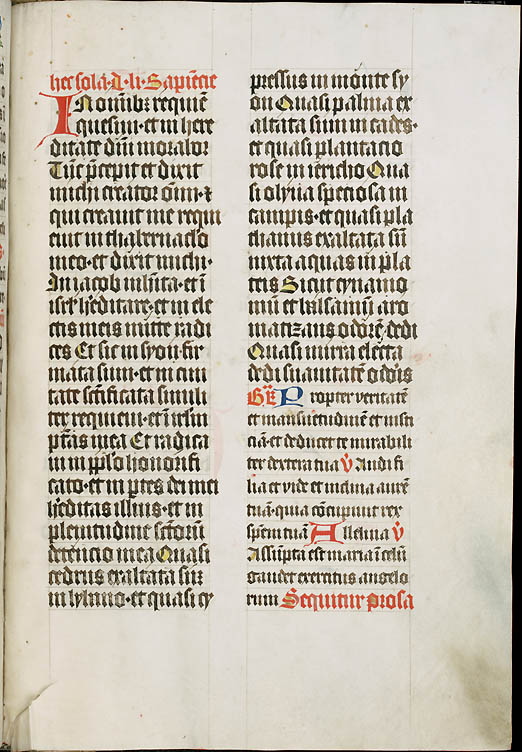 hec sola· d· li· Sapiēcie
IN om̄ibꝫ requiē
quesiui· et in here
ditate dn̄i morabor
Tūc p̄cepit et dixit
michi creator om̄i· ⁊
qui creauit me requi
euit in thabernaclo
meo· et dixit michi·
In iacob inh̄ita· et ī
isrl̄ h̄editare· et in ele
ctis meis mitte radi
ces Et sic in syon fir
mata sum· et in ciui
tate sc̄ificata simili
ter requieui· et ī ihrl̄m
ptās mea Et radica
ui in pp̄lo honorifi
cato· et in p̄tes dei mei
h̄editas illius· et in
plenitudine sc̄torū
detencio mea Quasi
cedrus exaltata sū ī
in lybano· et quasi cy
pressus in mōnte sy
on Quasi palma ex
altata sum in cades·
et quasi plantacio
rose in iericho Qua
si olyua speciosa in
campis· et quasi pla
thanus exaltata sū
iuxta aquas in pla
teis Sicut cynamo
mū et balsamū aro
matizans odorē dedi
Quasi mirra electa
dedi suauitatē odoris
Gr̄ Propter veritatē
et mansuetudinē et iusti
ciā· et deducet te mirabili
ter dextera tua V̇ Audi fi
lia et vide et inclina aurē
tuā· quia cōcupiuit rex
speciem tuā Alleluia V̇
Assūpta est maria in celū
gaudet exercitus angelo
rum Sequitur prosa